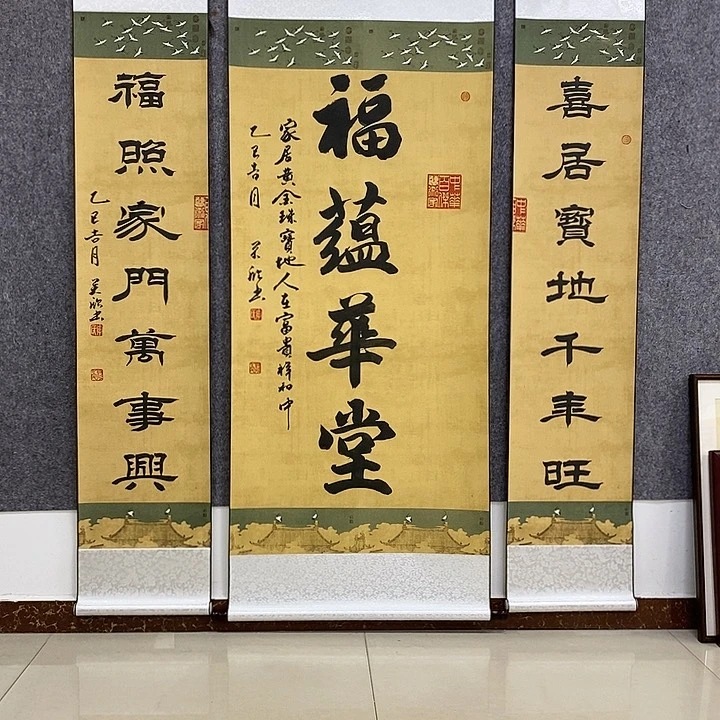 喜居寶地千年旺
福蘊華堂
家居黄金珠寶地人在富貴祥和中
乙巳吉月
福照家門萬事興
乙巳吉月